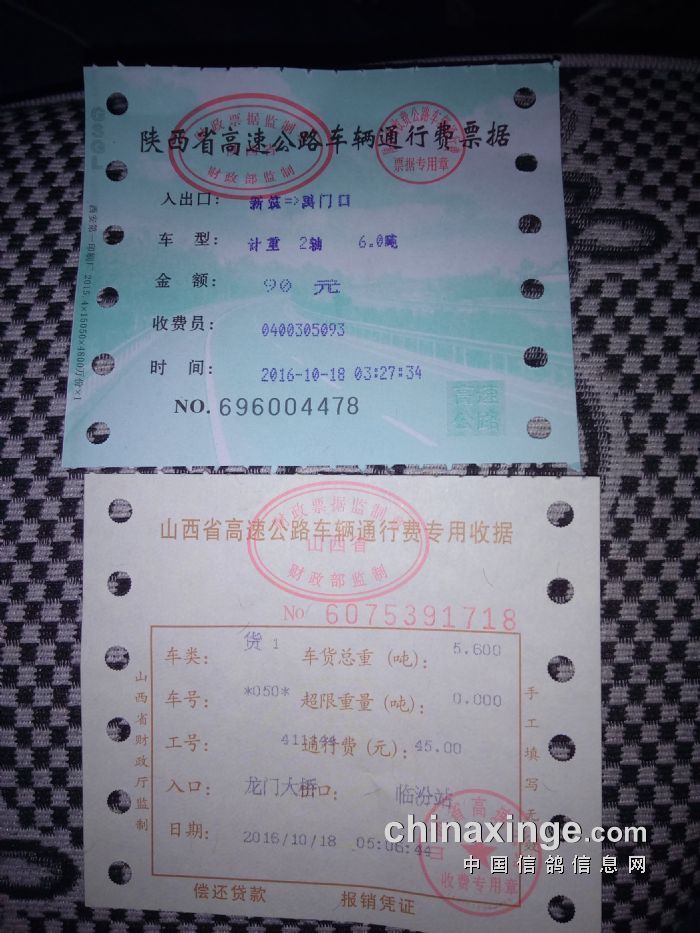 陕西省高速公路车辆通行费票据
财政票据监制
财政部监制
票据专用章
入出口: 新筑=>禹门口
车 型: 计重 2轴 6.0吨
金 额: 90 元
收费员: 0400305093
时 间: 2016-10-18 03:27:34
NO. 696004478
高速
公路
西安第一印刷厂 2015.4×15050×4800万份×1
财政票据监制
山西省高速公路车辆通行费专用收据
山西省
财政部监制
No 6075391718
车类: 货1 车货总重(吨): 5.600
车号: *050* 超限重量(吨): 0.000
工号: 通行费(元): 45.00
入口: 龙门大桥 出口: 临汾站
日期: 2016/10/18 05:06:44
山西省财政厅监制
手工填写无效
收费专用章
偿还贷款 报销凭证
chinaxinge.com
中国信鸽信息网